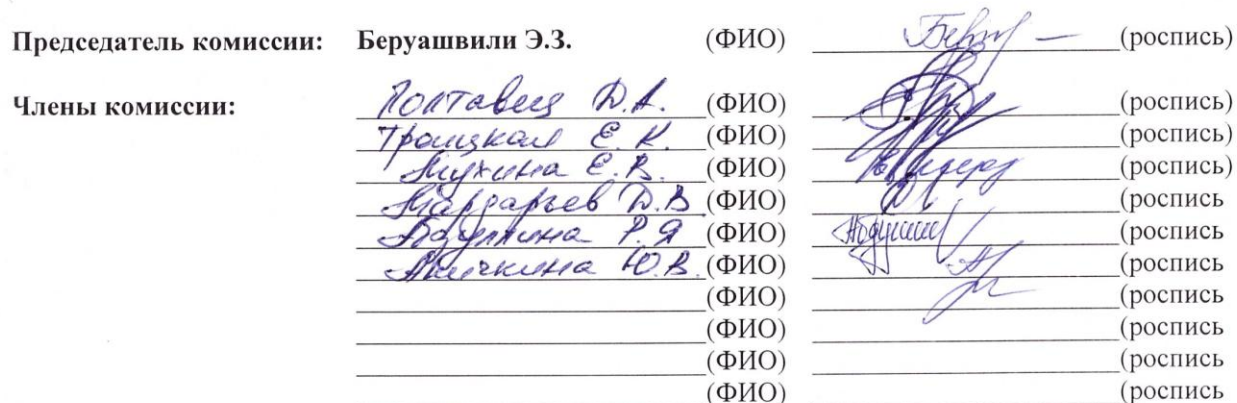 Председатель комиссии: Беруашвили Э.З. (ФИО) (роспись)
Члены комиссии: Полтавец Д.А. (ФИО) (роспись)
Троицкая Е.К. (ФИО) (роспись)
Мухина Е.В. (ФИО) (роспись)
Мардарьев Д.В (ФИО) (роспись
Абдуллина Р.Я (ФИО) (роспись
Аничкина Ю.В. (ФИО) (роспись
(ФИО) (роспись
(ФИО) (роспись
(ФИО) (роспись
(ФИО) (роспись